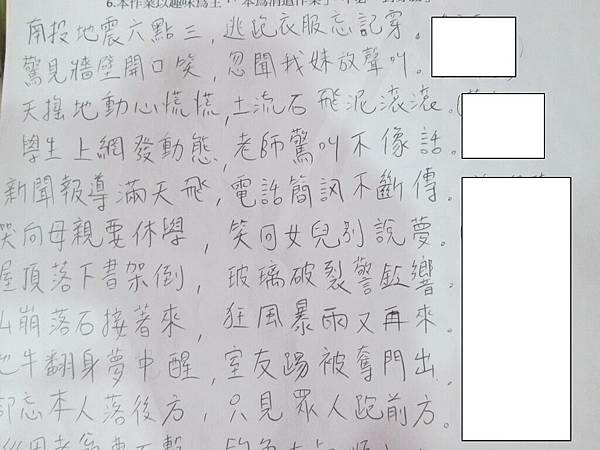 6.本作業以趣味為主
南投地震六點三，逃跑衣服忘記穿。
驚見牆壁開口笑，忽聞找妹放聲叫。
天搖地動心慌慌，土流石飛泥滾滾。
學生上網發動態，老師驚叫不像話。
新聞報導滿天飛，電話簡訊不斷傳。
笑向母親要休學，笑回女兒別說夢。
屋頂落下書架倒，玻璃破裂警鈴響。
山崩落石接著來，狂風暴雨又再來。
地牛翻身夢中醒，室友踢被奪門出。
卻忘本人落後方，只見眾人跑前方。